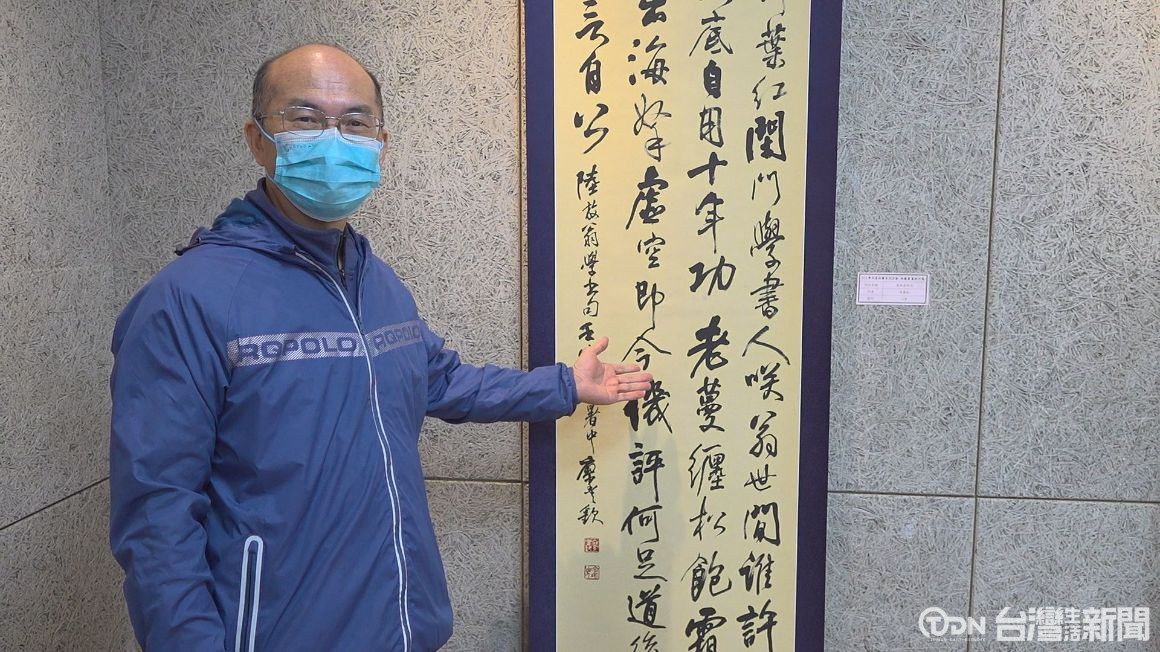 葉紅閉門學書人咲翁世間誰許
底自用十年功老蔓纏松飽霜
出海拏虛空即今譏評何足道後
言自公 陸放翁學書句
暑中
RQPOLO
RQPOLO
台灣生活新聞